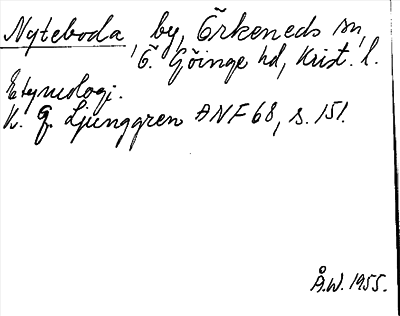 Nyteboda, by, Örkeneds sn,
Ö. Göinge hd, Krist. l.
Etymologi.
K. G. Ljunggren ANF 68, s. 151.
Å.W. 1955.